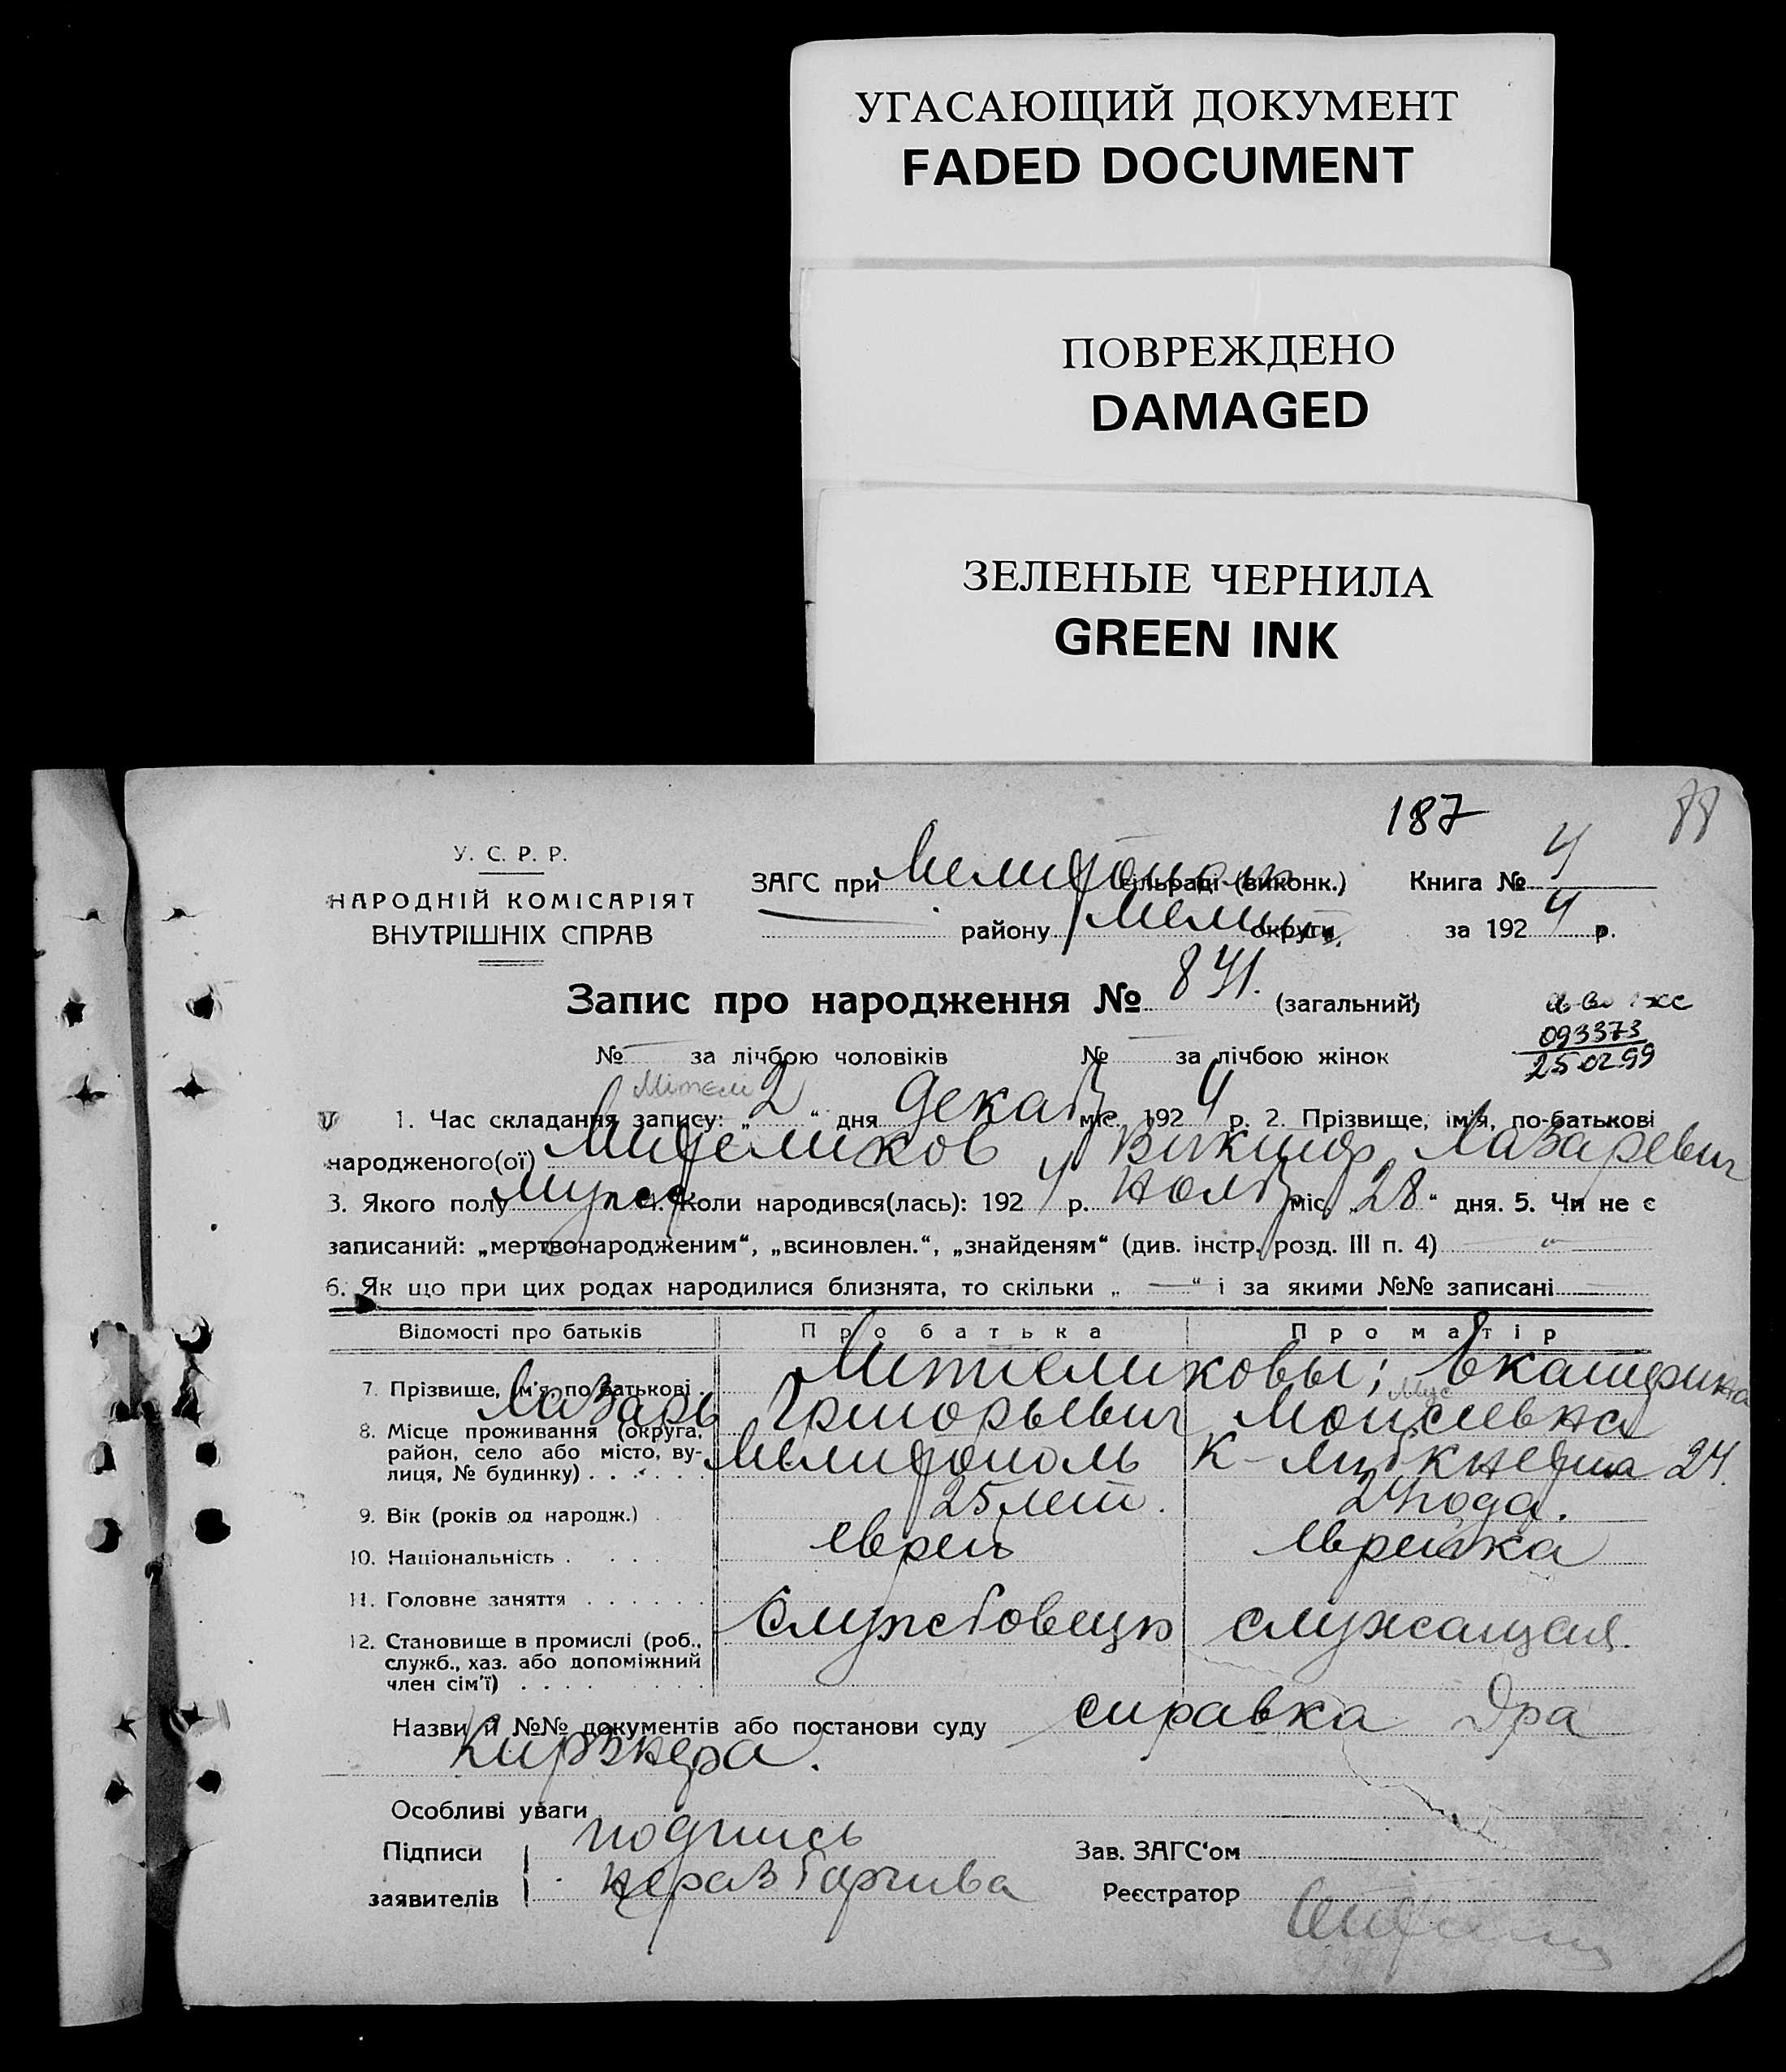 УГАСАЮЩИЙ ДОКУМЕНТ
FADED DOCUMENT
ПОВРЕЖДЕНО
DAMAGED
ЗЕЛЕНЫЕ ЧЕРНИЛА
GREEN INK
187
У. С. Р. Р.
НАРОДНІЙ КОМІСАРІЯТ
ВНУТРІШНІХ СПРАВ
ЗАГС при сільраді (виконк.) Книга № 4
району Мелит округи, за 192 4 р.
Запис про народження № 841. (загальний)
093373
250299
№ за лічбою чоловіків № за лічбою жінок
1. Час складання запису: „ 2 “ дня Декаб міс. 192 4 р. 2. Прізвище, ім'я, по-батькові
народженого(ої) Мителиков Виктор Лазаревич
3. Якого полу муж 4. Коли народився(лась): 192 4 р. Нояб міс. „ 28 “ дня. 5. Чи не є
записаний: „мертвонародженим“, „всиновлен.“, „знайденям“ (див. інстр. розд. III п. 4)
6. Як що при цих родах народилися близнята, то скільки „ — “ і за якими №№ записані
Відомості про батьків Про батька Про матір
7. Прізвище, ім'я, по батькові Мителиковы; Екатерина
Лазарь Григорьевич Моисеевна
8. Місце проживання (округа,
район, село або місто, ву-
лиця, № будинку) Мелитополь К-Либкнехта 24.
9. Вік (років од народж.) 25 лет. 24 года.
10. Національність еврей еврейка
11. Головне заняття
12. Становище в промислі (роб.,
служб., хаз. або допоміжний
член сім'ї) Службовець служащая.
Назви й №№ документів або постанови суду справка Дра
Кирзнера.
Особливі уваги
Підписи подпись
заявителів неразборчива
Зав. ЗАГС'ом
Реєстратор